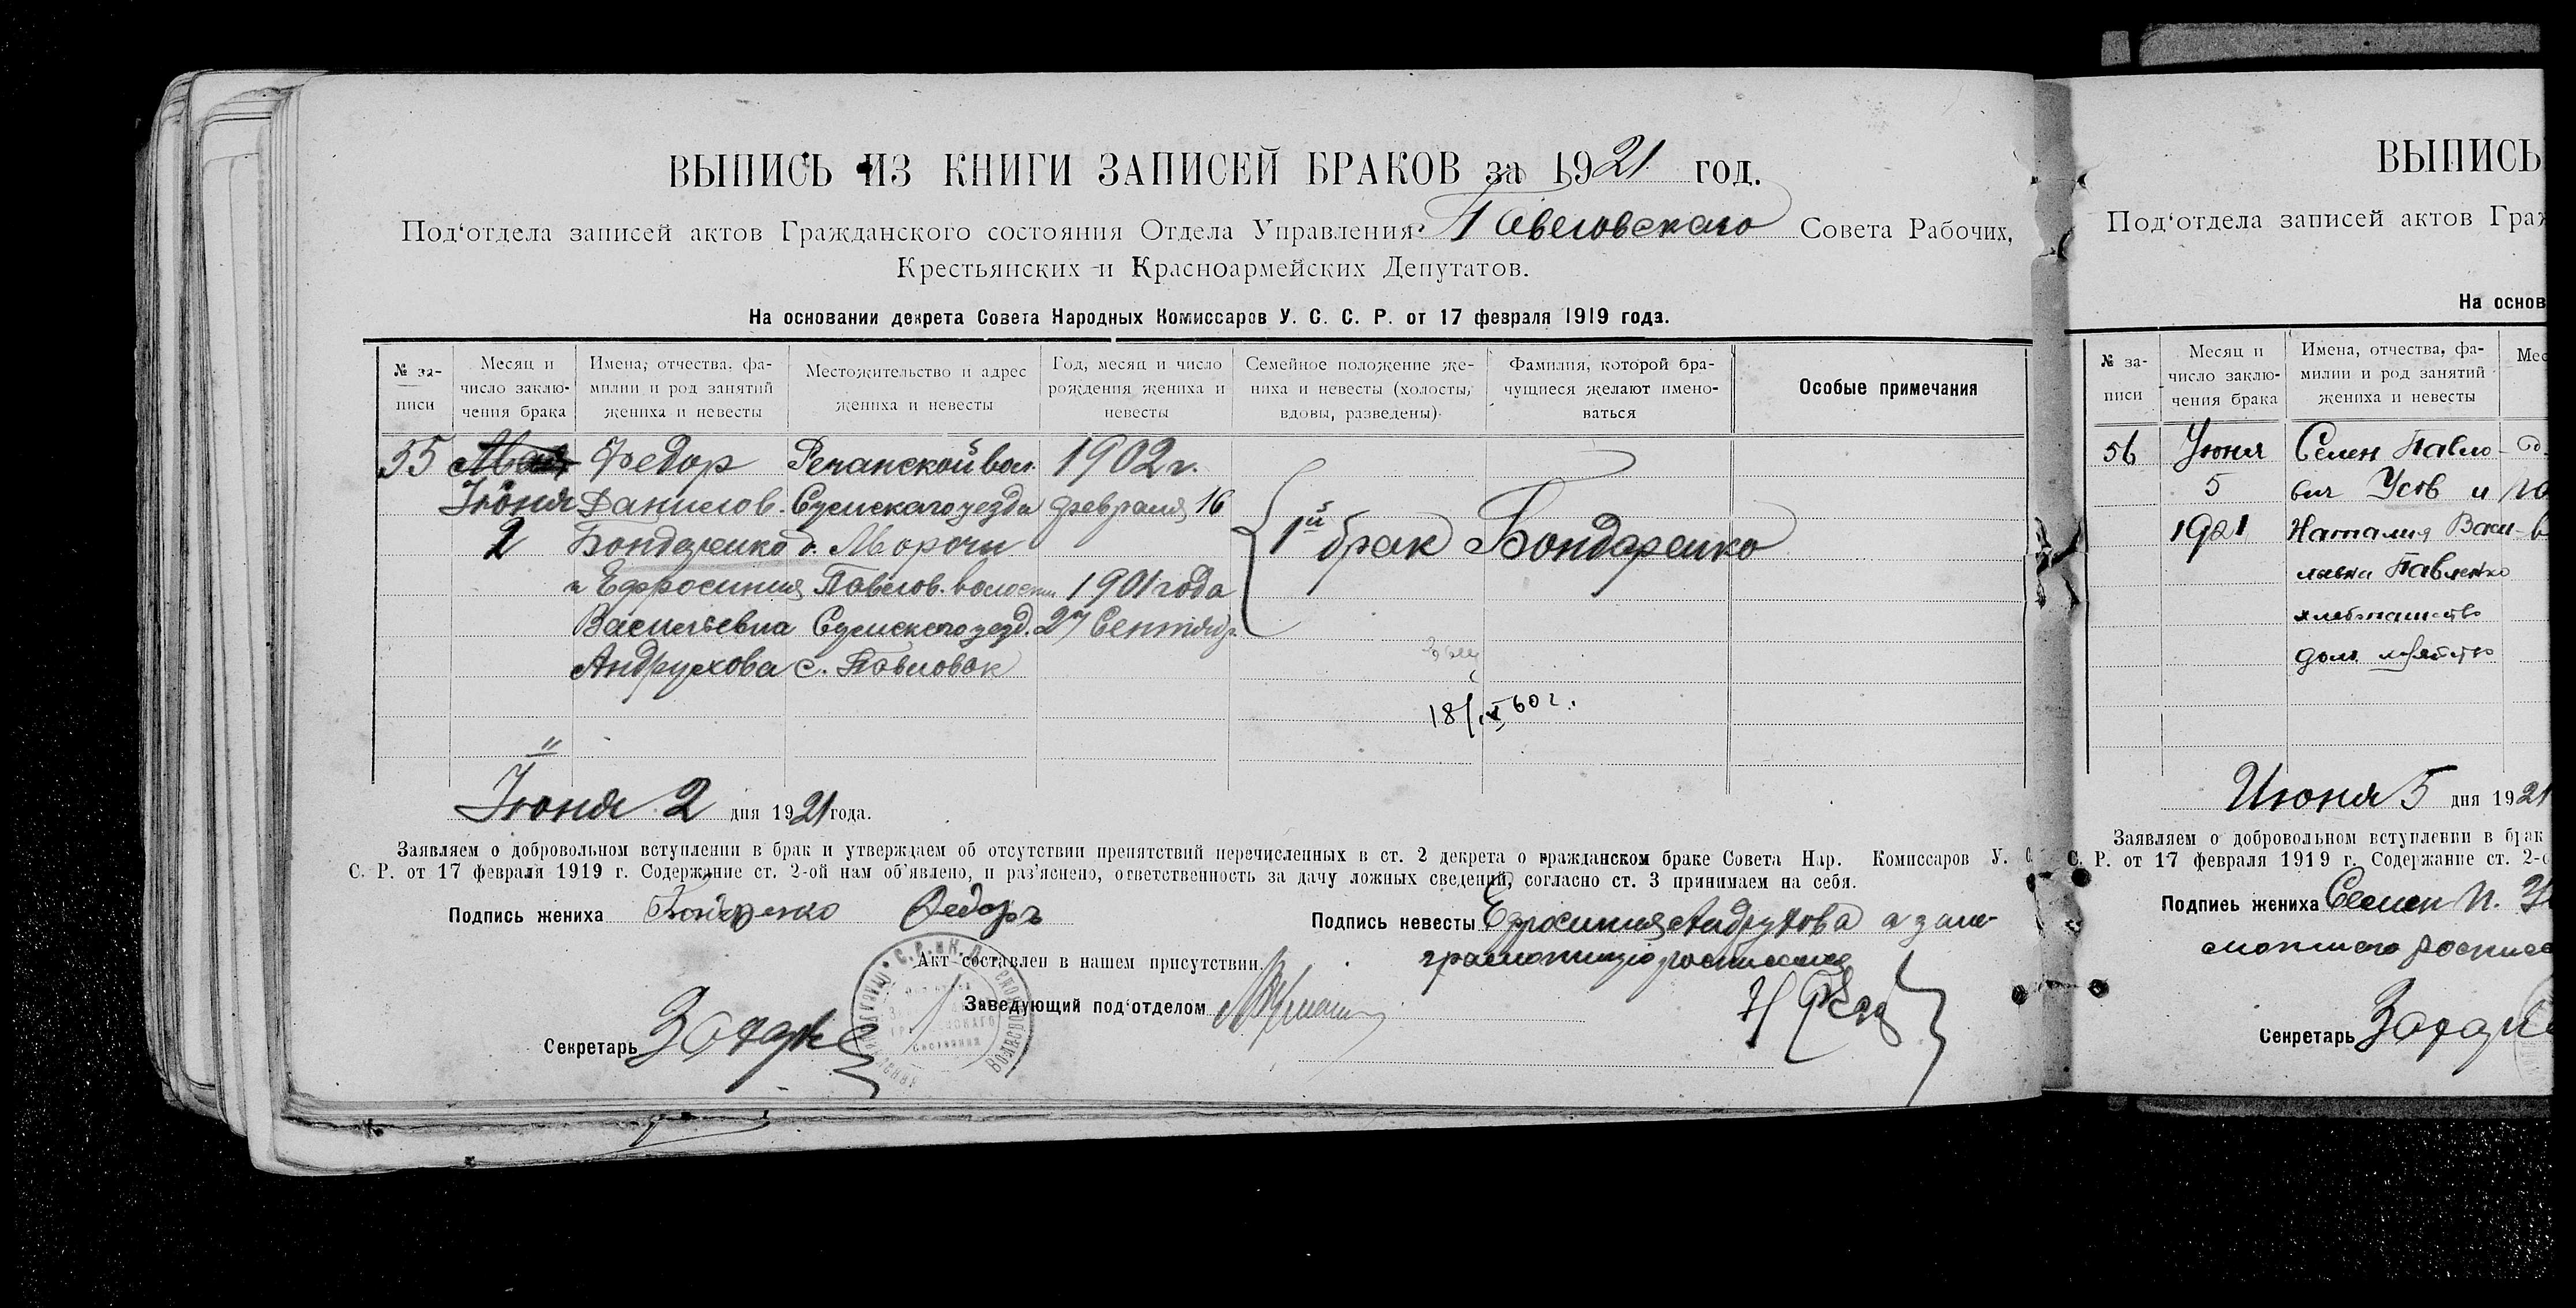 ВЫПИСЬ ИЗ КНИГИ ЗАПИСЕЙ БРАКОВ за 1921 год.
Под‘отдела записей актов Гражданского состояния Отдела Управления Павловскаго Совета Рабочих,
Крестьянских и Красноармейских Депутатов.
На основании декрета Совета Народных Комиссаров У. С. С. Р. от 17 февраля 1919 года.
№ за-
писи
Месяц и
число заклю-
чения брака
Имена, отчества, фа-
милии и род занятий
жениха и невесты
Местожительство и адрес
жениха и невесты
Год, месяц и число
рождения жениха и
невесты
Семейное положение же-
ниха и невесты (холосты,
вдовы, разведены)
Фамилия, которой бра-
чущиеся желают имено-
ваться
Особые примечания
55 Мая Федор Речанской вол. 1902 г.
Июня Данилов. Сумскаго уезда февраля 16
2 Бондаренко д. Марочи
1й брак Бондаренко
и Ефросиния Павлов. волости 1901 года
Васильевна Сумскаго уезд. 27 Сентябр.
Андрухова с. Павловок
18/ 60 г.
Июня 2 дня 1921 года.
Заявляем о добровольном вступлении в брак и утверждаем об отсутствии препятствий перечисленных в ст. 2 декрета о гражданском браке Совета Нар. Комиссаров У. С.
С. Р. от 17 февраля 1919 г. Содержание ст. 2-ой нам об‘явлено, и раз‘яснено, ответственность за дачу ложных сведений, согласно ст. 3 принимаем на себя.
Подпись жениха Бондаренко Федоръ
Подпись невесты Ефросиния Андрухова а за не-
грамотную росписался
Акт составлен в нашем присутствии.
Заведующий под‘отделом
Секретарь
ВЫПИСЬ
Под‘отдела записей актов Граж
На основ
№ за-
писи
Месяц и
число заклю-
чения брака
Имена, отчества, фа-
милии и род занятий
жениха и невесты
Мес
56 Июня Семен Павло-
5 вич Усов и
1921 Наталия Васи-
льевна Павленко
хлебопашество
Июня 5 дня 1921
Заявляем о добровольном вступлении в брак
С. Р. от 17 февраля 1919 г. Содержание ст. 2-о
Подпись жениха Семен П.
Секретарь